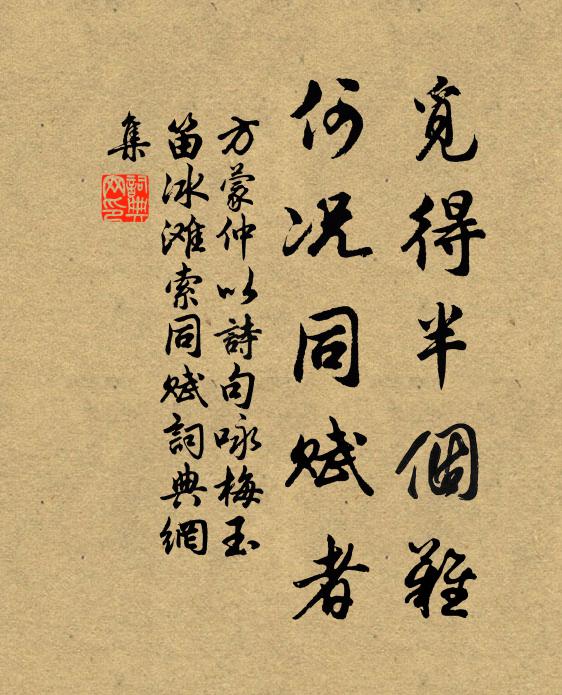 覓得半個難
何況同賦者
方蒙仲以詩句咏梅玉
笛冰滩索同賦詞典網
集
詞典網印